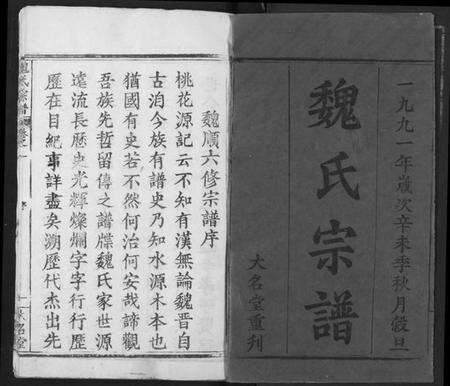 一九九一年歲次辛未季秋月穀旦
魏氏宗譜
大名堂重刋
魏順六修宗譜序
桃花源記云不知有漢無論魏晋自
古洎今族有譜史乃知水源木本也
猶國有史若不然何治何安哉諦觀
吾族先哲留傳之譜牒魏氏家世源
遠流長歷史光輝燦爛字字行行歷
歷在目紀事詳盡矣溯歷代杰出先
大名堂